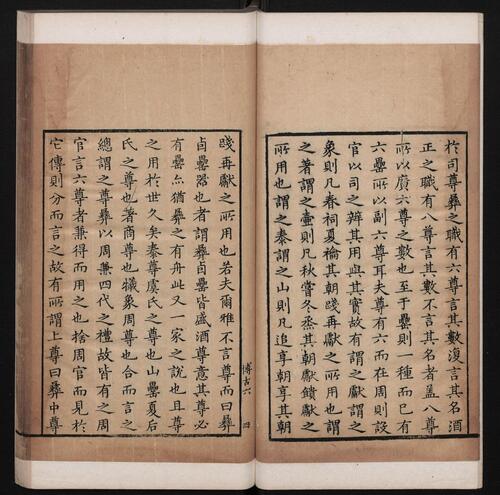 於司尊彝之職有六尊言其數復言其名酒
正之職有八尊言其數不言其名者蓋八尊
所以廣六尊之數也至于罍則一種而已有
六罍所以副六尊耳夫尊有六而在周則設
官以司之辨其用與其實故有謂之獻謂之
象則凡春祠夏禴其朝踐再獻之所用也謂
之著謂之壺則凡秋嘗冬烝其朝獻饋獻之
所用也謂之泰謂之山則凡追享朝享其朝
博古六 四
踐再獻之所用也若夫爾雅不言尊而曰彝
卣罍器也者謂彝卣罍皆盛酒尊意其尊必
有罍亦猶彝之有舟此又一家之說也且尊
之用於世久矣泰尊虞氏之尊也山罍夏后
氏之尊也著商尊也犧象周尊也合而言之
總謂之尊彝以周兼四代之禮故皆有之周
官言六尊者兼得而用之也捨周官而見於
它傳則分而言之故有所謂上尊曰彝中尊